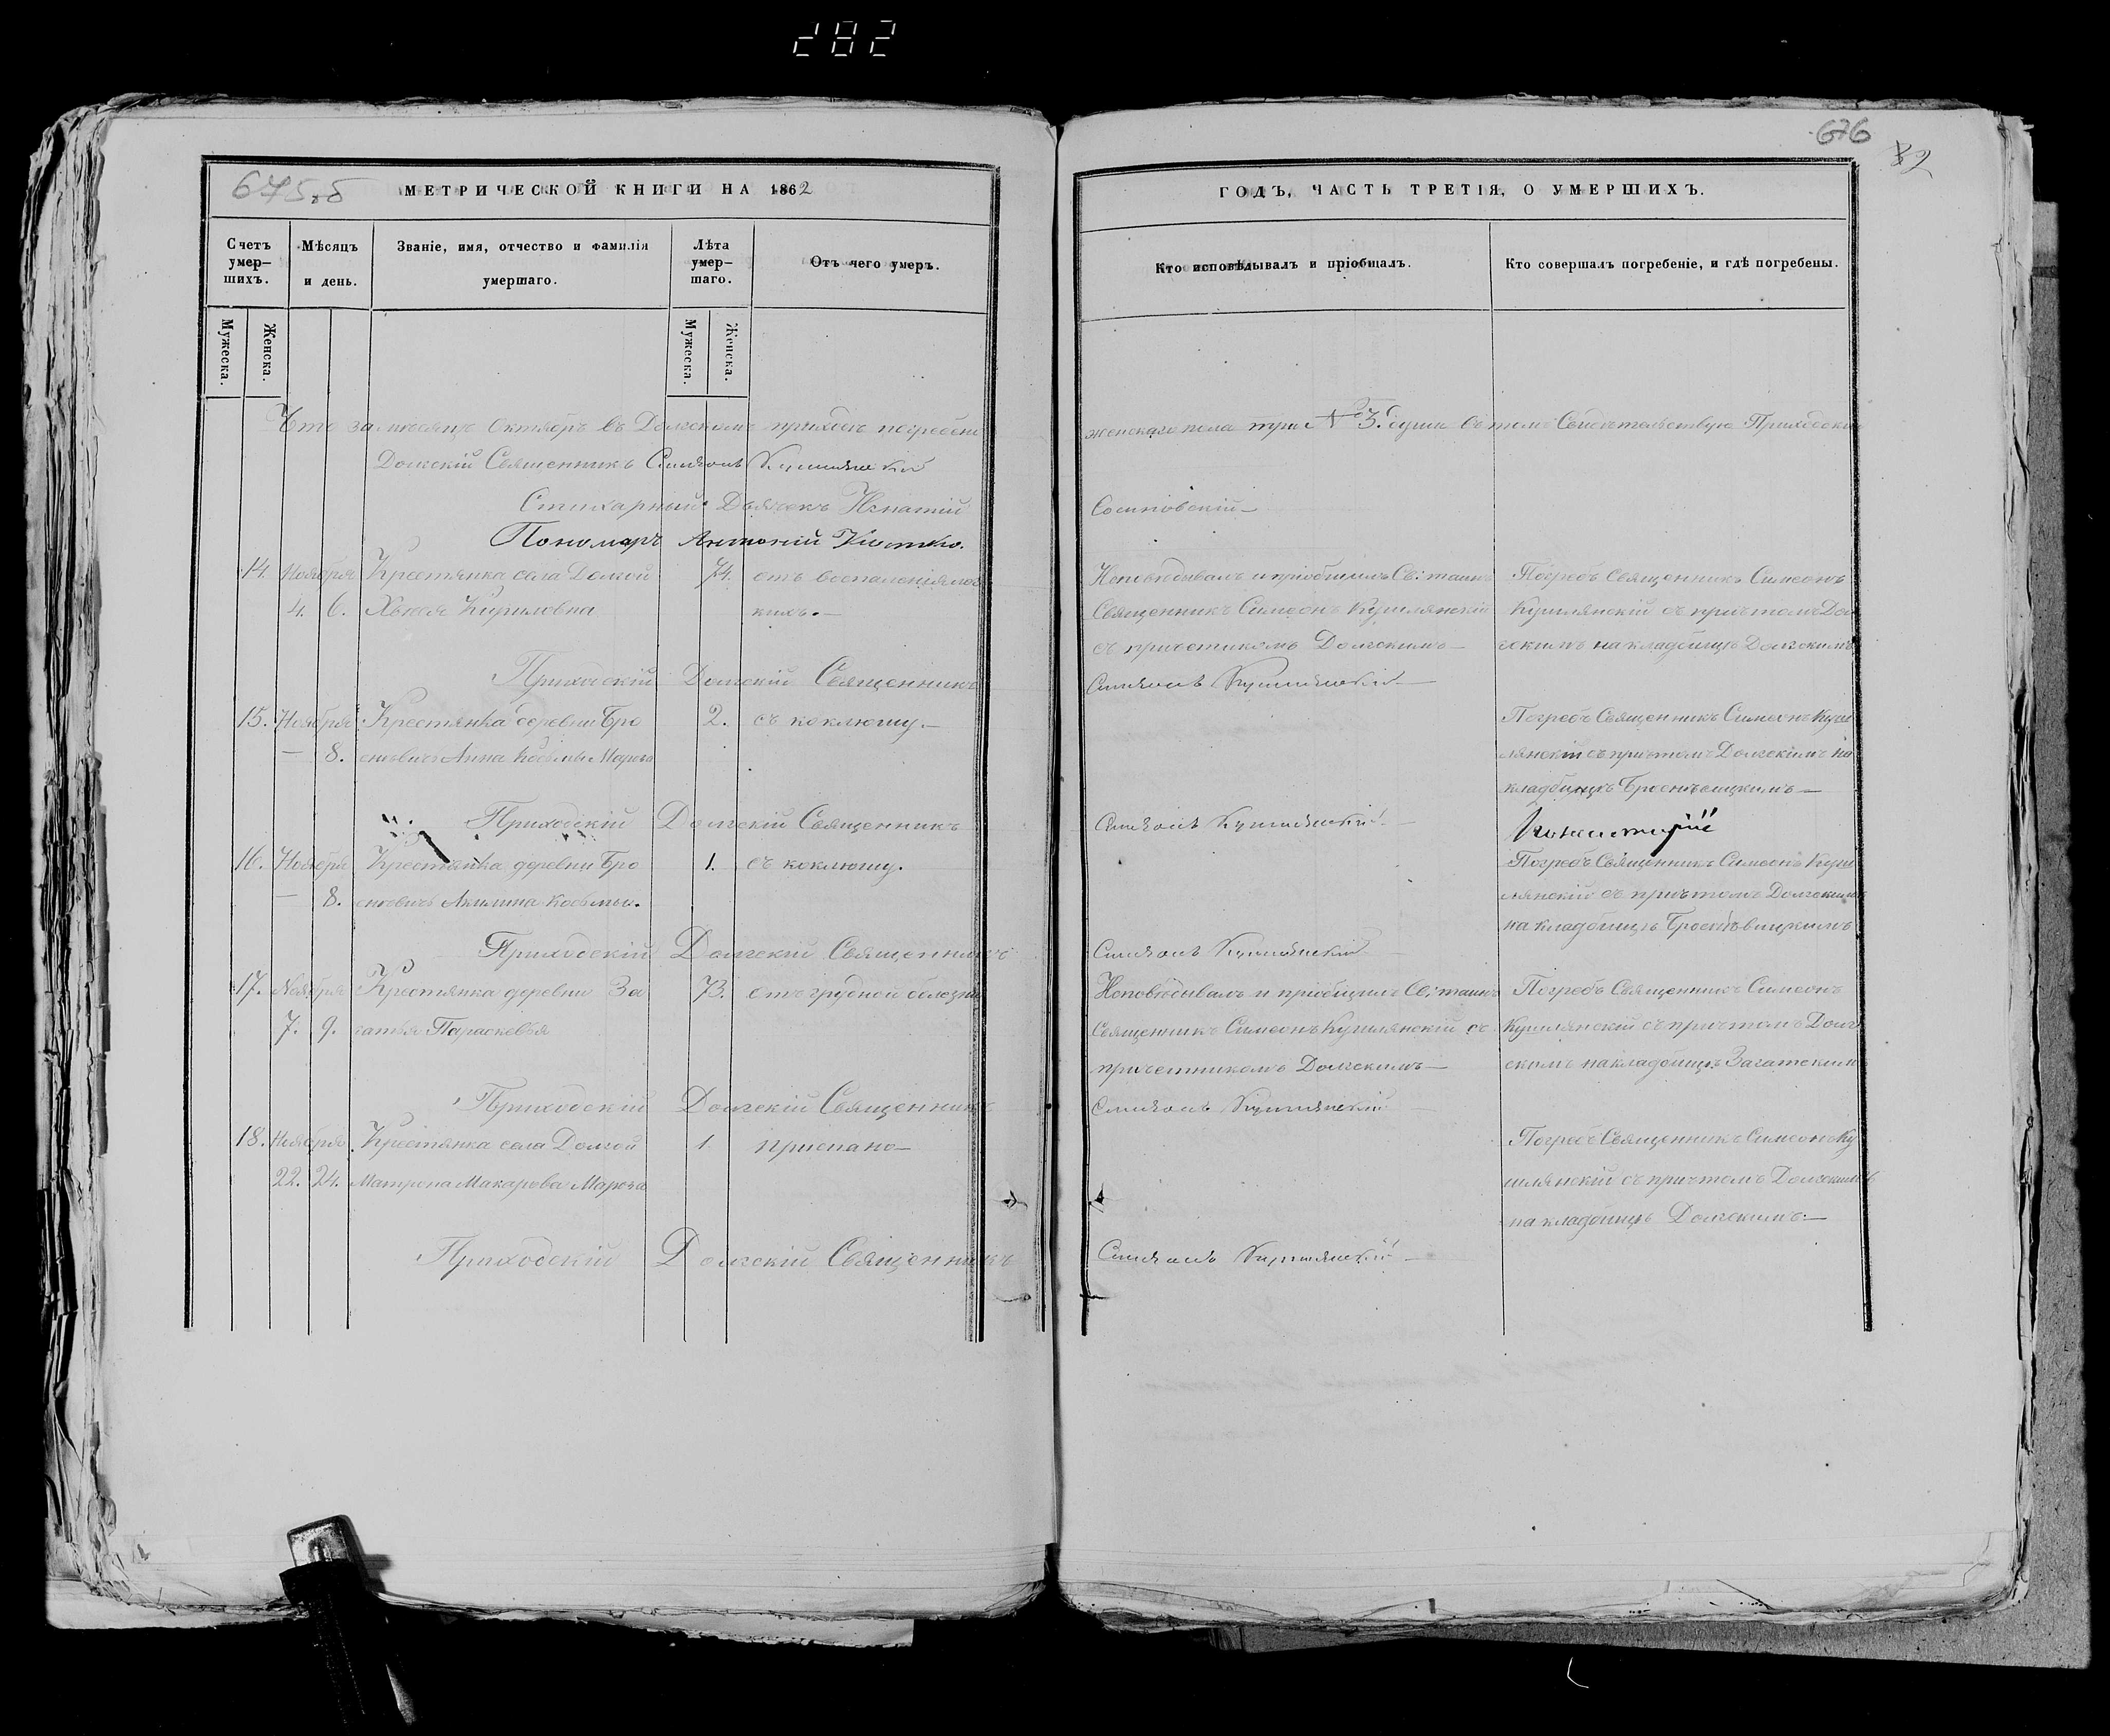 282
675 об
МЕТРИЧЕСКОЙ КНИГИ НА 1862
Счетъ умер-шихъ.
Мѣсяцъ и день.
Званіе, имя, отчество и фамилія умершаго.
Лѣта умер-шаго.
Отъ чего умеръ.
Мужеска.
Женска.
Мужеска.
Женска.
Что за мѣсяцъ Октябрь въ Долгскомъ приходѣ погребено
Долгскій Священникъ Симеонъ Кушлянскій
Стихарный Дьячекъ Игнатій
Пономарь Антоній
14. Ноября Крестянка села Долгой 74. отъ воспаленія лег
4. 6. Кириловна кихъ.—
Приходскій Долгскій Священникъ
15. Ноября Крестянка деревни Бро 2. съ коклюшу.—
— 8. Анна Косьмы
Приходскій Долгскій Священникъ
16. Ноября Крестянка деревни Бро 1. съ коклюшу.
— 8. Акилина Косьмы.
Приходскій Долгскій Священникъ
17. Ноября Крестянка деревни За 73. отъ грудной болезни
7. 9. гатья Параскевія
Приходскій Долгскій Священникъ
18. Ноября Крестянка села Долгой 1. приспано—
22. 24. Матрона Макарова Мароза
Приходскій Долгскій Священникъ
676
82
ГОДЪ, ЧАСТЬ ТРЕТІЯ, О УМЕРШИХЪ.
Кто исповѣдывалъ и пріобщалъ.
Кто совершалъ погребеніе, и гдѣ погребены.
женскаго пола три № 3. души въ томъ Свидѣтельствую Приходскій
Сосиновскій—
Исповѣдывалъ и пріобщилъ Св: таинъ
Священникъ Симеонъ Кушлянскій
съ причетникомъ Долгскимъ—
Погребъ Священникъ Симеонъ
Кушлянскій съ причтомъ Дол
гскимъ на кладбищѣ Долгскимъ
Симеонъ Кушлянскій—
Погребъ Священникъ Симеонъ Куш
лянскій съ причтомъ Долгскимъ на
кладбищѣ
Симеонъ Кушлянскій—
Погребъ Священникъ Симеонъ Куш
лянскій съ причтомъ Долгскимъ
на кладбищѣ
Симеонъ Кушлянскій
Исповѣдывалъ и пріобщилъ Св: таинъ
Священникъ Симеонъ Кушлянскій съ
причетникомъ Долгскимъ—
Погребъ Священникъ Симеонъ
Кушлянскій съ причтомъ Долг
скимъ на кладбищѣ Загатскимъ
Симеонъ Кушлянскій
Погребъ Священникъ Симеонъ Ку
шлянскій съ причтомъ Долгскимъ
на кладбищѣ Долгскимъ:—
Симеонъ Кушлянскій—